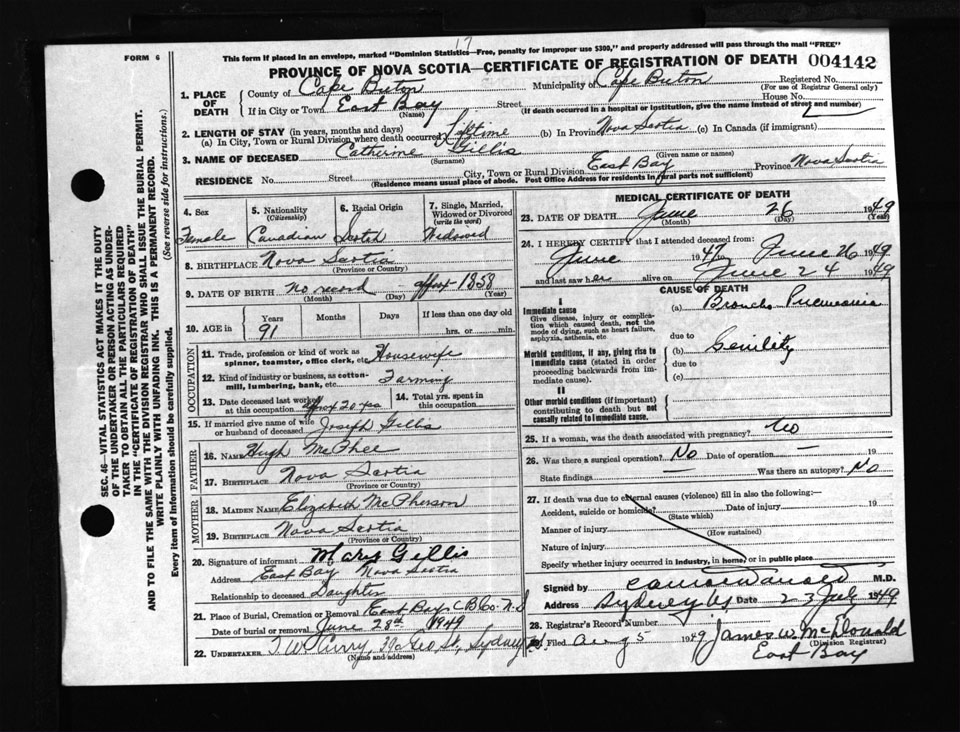 17
This form if placed in an envelope, marked "Dominion Statistics—Free, penalty for improper use $300," and properly addressed will pass through the mail "FREE"
FORM 6
PROVINCE OF NOVA SCOTIA—CERTIFICATE OF REGISTRATION OF DEATH 004142
SEC. 46—VITAL STATISTICS ACT MAKES IT THE DUTY
OF THE UNDERTAKER OR PERSON ACTING AS UNDER-
TAKER TO OBTAIN ALL THE PARTICULARS REQUIRED
IN THE "CERTIFICATE OF REGISTRATION OF DEATH"
AND TO FILE THE SAME WITH THE DIVISION REGISTRAR WHO SHALL ISSUE THE BURIAL PERMIT.
WRITE PLAINLY WITH UNFADING INK. THIS IS A PERMANENT RECORD.
Every item of Information should be carefully supplied. (See reverse side for instructions.)
1. PLACE OF DEATH
County of Cape Breton Municipality of Cape Breton Registered No.
(For use of Registrar General only)
If in City or Town East Bay Street House No.
(Name) (If death occurred in a hospital or institution, give the name instead of street and number)
2. LENGTH OF STAY (in years, months and days)
(a) In City, Town or Rural Division where death occurred Lifetime (b) In Province Nova Scotia (c) In Canada (if immigrant)
3. NAME OF DECEASED Catherine Gillis
(Surname) (Given name or names)
RESIDENCE No. Street City, Town or Rural Division East Bay Province Nova Scotia
(Residence means usual place of abode. Post Office Address for residents in rural parts not sufficient)
4. Sex Female
5. Nationality (Citizenship) Canadian
6. Racial Origin Scotch
7. Single, Married, Widowed or Divorced (write the word) Widowed
8. BIRTHPLACE Nova Scotia
(Province or Country)
9. DATE OF BIRTH no record approx 1858
(Month) (Day) (Year)
10. AGE in Years Months Days If less than one day old
91 hrs. or min.
OCCUPATION
11. Trade, profession or kind of work as spinner, teamster, office clerk, etc. Housewife
12. Kind of industry or business, as cotton-mill, lumbering, bank, etc. Farming
13. Date deceased last worked at this occupation approx 20 yrs
14. Total yrs. spent in this occupation
15. If married give name of wife or husband of deceased Joseph Gillis
FATHER
16. NAME Hugh McPhee
17. BIRTHPLACE Nova Scotia
(Province or Country)
MOTHER
18. MAIDEN NAME Elizabeth McPherson
19. BIRTHPLACE Nova Scotia
(Province or Country)
20. Signature of informant Mary Gillis
Address East Bay Nova Scotia
Relationship to deceased Daughter
21. Place of Burial, Cremation or Removal East Bay C B Co. N.S
Date of burial or removal June 28th 1949
22. UNDERTAKER T. W. Curry, Geo St., Sydney
(Name and address)
MEDICAL CERTIFICATE OF DEATH
23. DATE OF DEATH June 26 1949
(Month) (Day) (Year)
24. I HEREBY CERTIFY that I attended deceased from:
June 1947 to June 26 1949
and last saw her alive on June 24 1949
CAUSE OF DEATH
I
Immediate cause
Give disease, injury or complication which caused death, not the mode of dying, such as heart failure, asphyxia, asthenia, etc
(a) Broncho Pneumonia
due to
Morbid conditions, if any, giving rise to immediate cause (stated in order proceeding backwards from immediate cause.
(b) Senility
due to
(c)
II
Other morbid conditions (if important) contributing to death but not causally related to immediate cause.
25. If a woman, was the death associated with pregnancy? No
26. Was there a surgical operation? No Date of operation 19
State findings Was there an autopsy? No
27. If death was due to external causes (violence) fill in also the following:—
Accident, suicide or homicide? Date of injury 19
(State which)
Manner of injury
(How sustained)
Nature of injury
Specify whether injury occurred in industry, in home, or in public place
Signed by M.D.
Address Sydney NS Date 23 July 1949
28. Registrar's Record Number
Filed Aug 5 1949 James W. McDonald
(Division Registrar)
East Bay